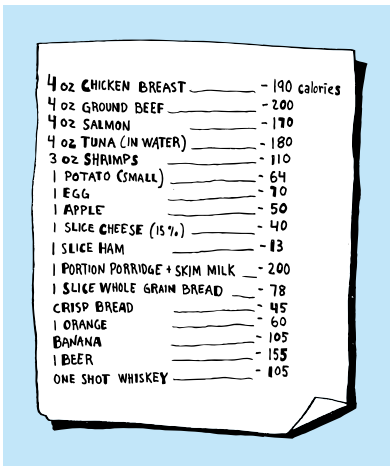 4 oz CHICKEN BREAST - 190 calories
4 oz GROUND BEEF - 200
4 oz SALMON - 170
4 oz TUNA (IN WATER) - 180
3 oz SHRIMPS - 110
1 POTATO (SMALL) - 64
1 EGG - 70
1 APPLE - 50
1 SLICE CHEESE (15%) - 40
1 SLICE HAM - 13
1 PORTION PORRIDGE + SKIM MILK - 200
1 SLICE WHOLE GRAIN BREAD - 78
CRISP BREAD - 45
1 ORANGE - 60
BANANA - 105
1 BEER - 155
ONE SHOT WHISKEY - 105